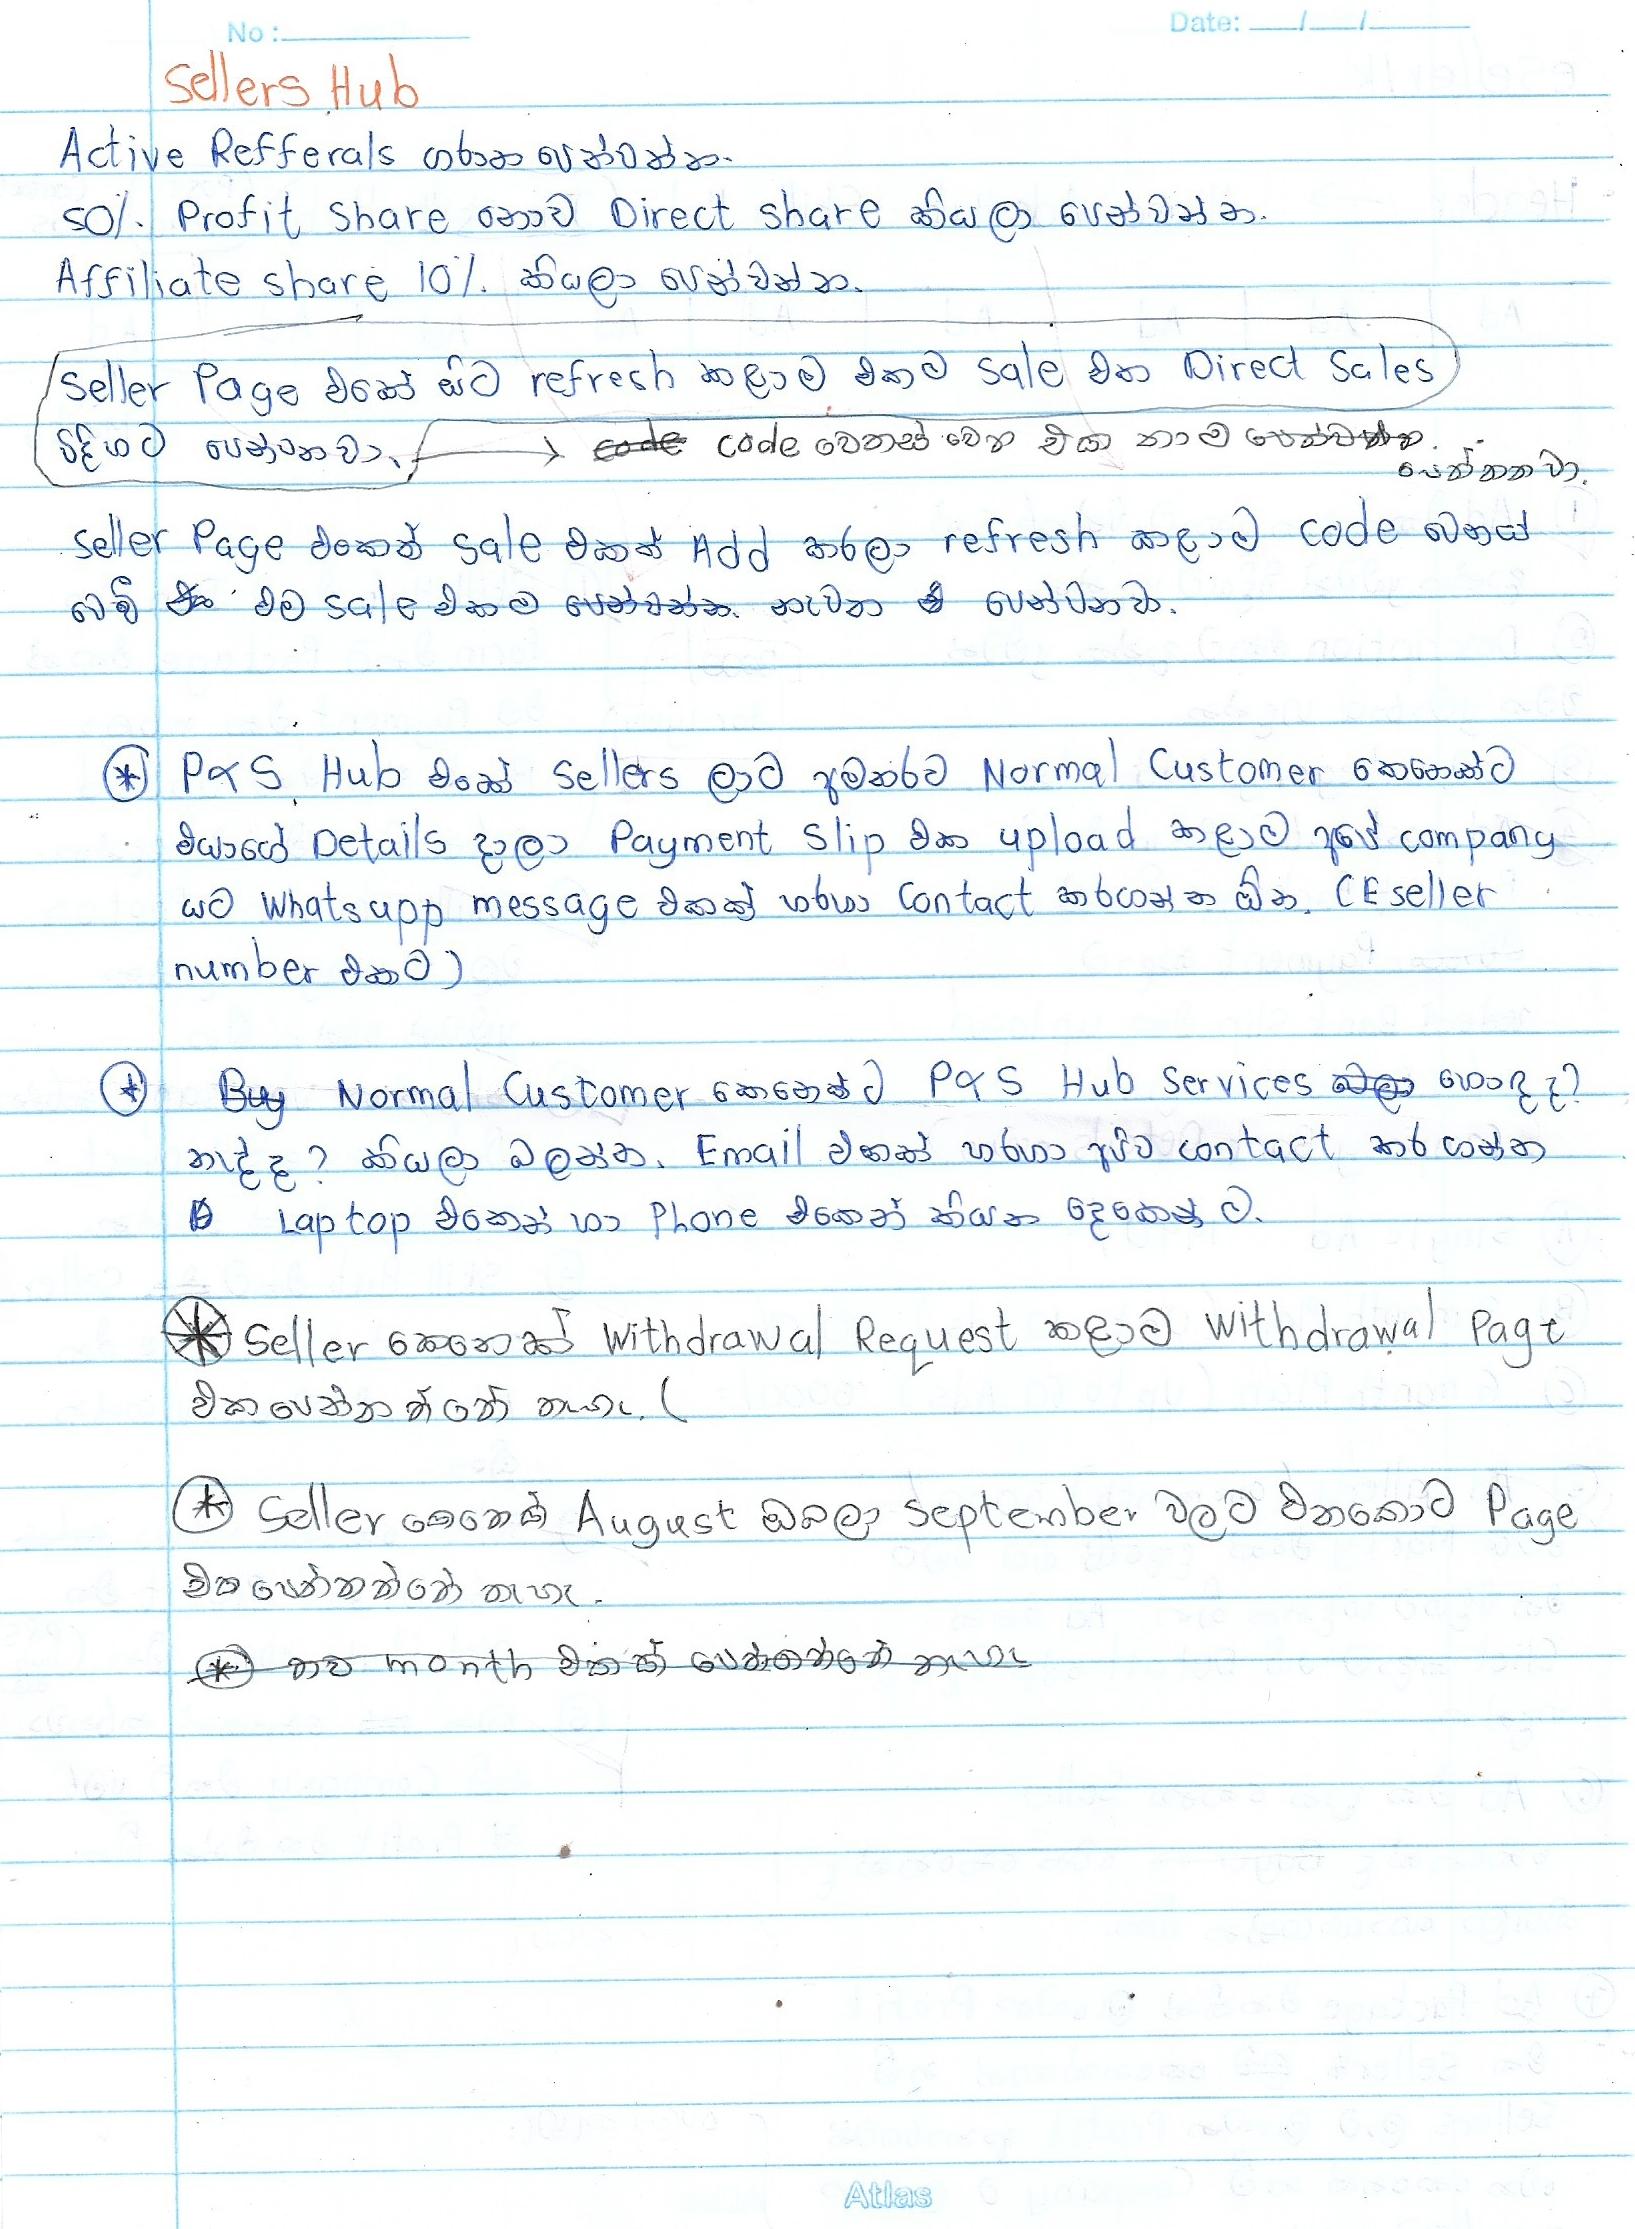 No :
Date: __/__/__
Sellers Hub
Active Refferals ගණන පෙන්වන්න.
50%. Profit Share නොව Direct share කියලා පෙන්වන්න.
Affiliate share 10%. කියලා පෙන්වන්න.
Seller Page එකේ සිට refresh කළාම එකම sale එක Direct Sales
විදිහට පෙන්වනවා. → code code වෙනස් වෙන එක තාම පෙන්වන්න.
පෙන්නනවා.
Seller Page එකෙන් sale එකක් Add කරලා refresh කළාම code වෙනස්
වෙවී එම sale එකම පෙන්වන්න. නැවත පෙන්වනවා.
* P&S Hub එකේ Sellers ලාට අමතරව Normal Customer කෙනෙක්ට
එයාගේ Details දාලා Payment Slip එක upload කළාම අපේ company
එකට Whatsapp message එකක් හරහා Contact කරගන්න ඕන. (E seller
number එකට)
* Buy Normal Customer කෙනෙක්ට P&S Hub Services බලා හොඳද?
නැද්ද? කියලා බලන්න. Email එකක් හරහා අපිව contact කර ගන්න
Laptop එකෙන් හා Phone එකෙන් කියන දෙකෙන් ට.
* Seller කෙනෙක් Withdrawal Request කළාම Withdrawal Page
එක පෙන්නන්නේ නැහැ. (
* Seller කෙනෙක් August ඔබලා September වලට එනකොට Page
එක පෙන්නන්නේ නැහැ.
* නව month එකක් පෙන්නන්නේ නැහැ
Atlas